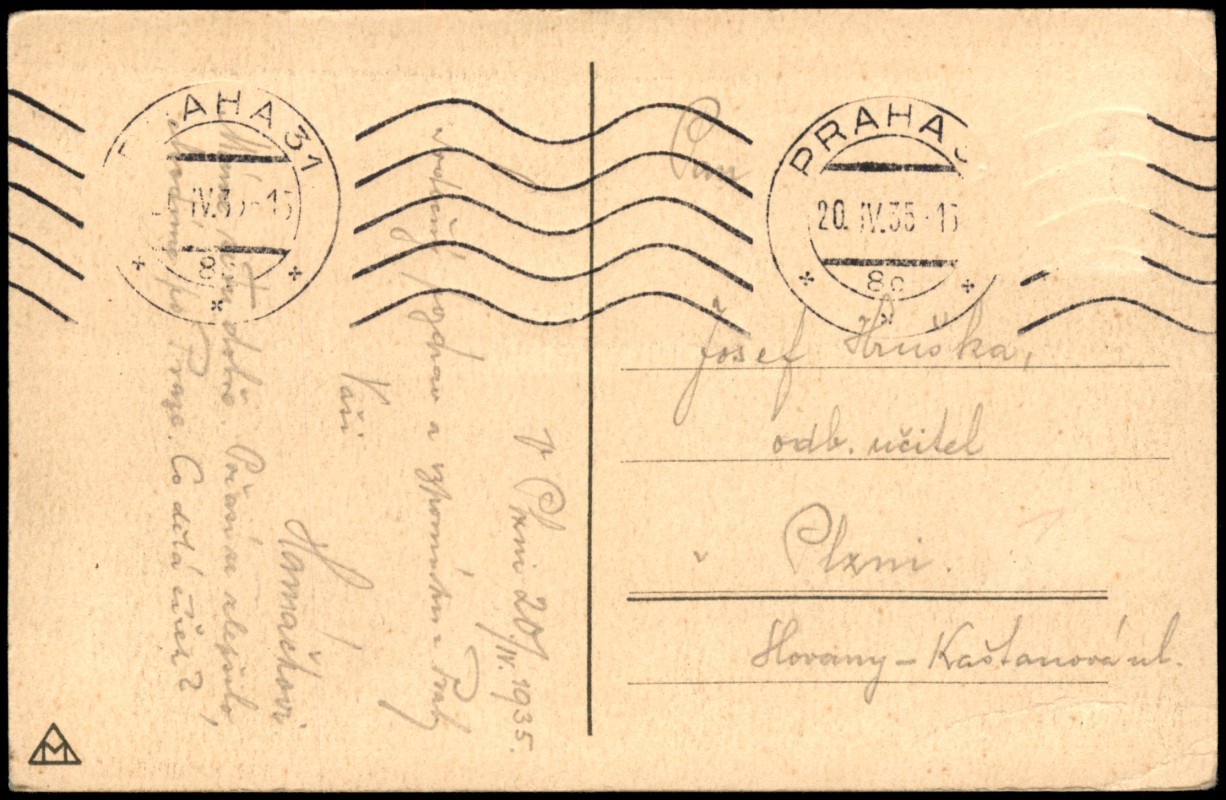 PRAHA 31
IV.35-15
8
PRAHA
20. IV.35-15
8c
Pan
Josef Hruška,
odb. učitel
v Plzni.
Slovany - Kaštanová ul.
V Plzni 20/IV. 1935.
Srdečný pozdrav a vzpomínku z Prahy
Vaši
Máme se tu dobře. Počasí se zlepšilo,
po Praze. Co dělá